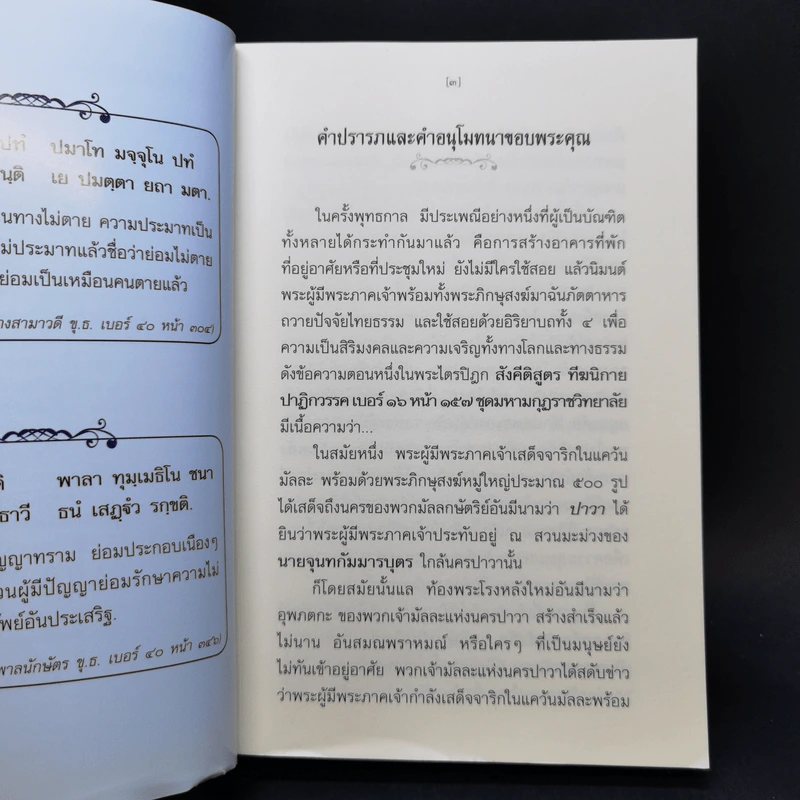 ปทํ ปมาโท มจฺจุโน ปทํ
เย ปมตฺตา ยถา มตา.
นทางไม่ตาย ความประมาทเป็น
ม่ประมาทแล้วชื่อว่าย่อมไม่ตาย
ย่อมเป็นเหมือนคนตายแล้ว
างสามาวดี ขุ.ธ. เบอร์ ๔๐ หน้า ๓๐๔)
พาลา ทุมฺเมธิโน ชนา
ธาวี ธนํ เสฏฺฐํว รกฺขติ.
ญญาทราม ย่อมประกอบเนืองๆ
วนผู้มีปัญญาย่อมรักษาความไม่
รัพย์อันประเสริฐ.
พาลนักษัตร ขุ.ธ. เบอร์ ๔๐ หน้า ๓๔๖)
[๓]
คำปรารภและคำอนุโมทนาขอบพระคุณ
ในครั้งพุทธกาล มีประเพณีอย่างหนึ่งที่ผู้เป็นบัณฑิต
ทั้งหลายได้กระทำกันมาแล้ว คือการสร้างอาคารที่พัก
ที่อยู่อาศัยหรือที่ประชุมใหม่ ยังไม่มีใครใช้สอย แล้วนิมนต์
พระผู้มีพระภาคเจ้าพร้อมทั้งพระภิกษุสงฆ์มาฉันภัตตาหาร
ถวายปัจจัยไทยธรรม และใช้สอยด้วยอิริยาบถทั้ง ๔ เพื่อ
ความเป็นสิริมงคลและความเจริญทั้งทางโลกและทางธรรม
ดังข้อความตอนหนึ่งในพระไตรปิฎก สังคีติสูตร ทีฆนิกาย
ปาฏิกวรรค เบอร์ ๑๖ หน้า ๑๕๗ ชุดมหามกุฏราชวิทยาลัย
มีเนื้อความว่า...
ในสมัยหนึ่ง พระผู้มีพระภาคเจ้าเสด็จจาริกในแคว้น
มัลละ พร้อมด้วยพระภิกษุสงฆ์หมู่ใหญ่ประมาณ ๕๐๐ รูป
ได้เสด็จถึงนครของพวกมัลลกษัตริย์อันมีนามว่า ปาวา ได้
ยินว่าพระผู้มีพระภาคเจ้าประทับอยู่ ณ สวนมะม่วงของ
นายจุนทกัมมารบุตร ใกล้นครปาวานั้น
ก็โดยสมัยนั้นแล ท้องพระโรงหลังใหม่อันมีนามว่า
อุพภตกะ ของพวกเจ้ามัลละแห่งนครปาวา สร้างสำเร็จแล้ว
ไม่นาน อันสมณพราหมณ์ หรือใครๆ ที่เป็นมนุษย์ยัง
ไม่ทันเข้าอยู่อาศัย พวกเจ้ามัลละแห่งนครปาวาได้สดับข่าว
ว่าพระผู้มีพระภาคเจ้ากำลังเสด็จจาริกในแคว้นมัลละพร้อม